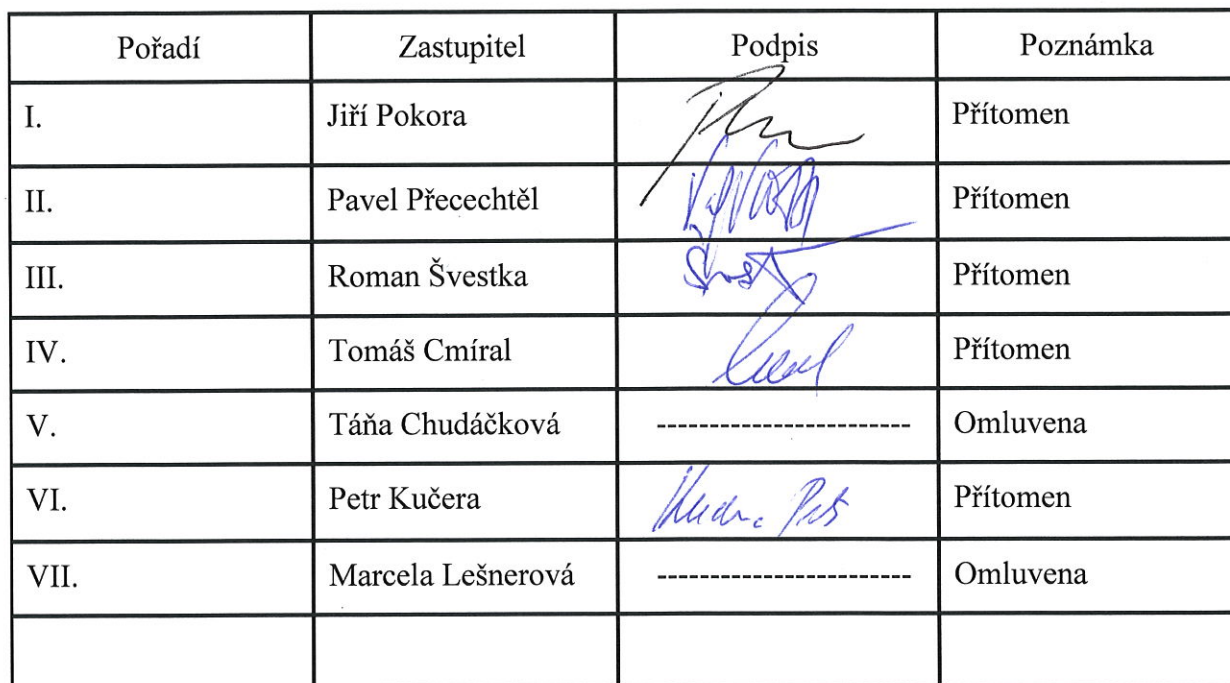 Pořadí Zastupitel Podpis Poznámka
I. Jiří Pokora Přítomen
II. Pavel Přecechtěl Přítomen
III. Roman Švestka Přítomen
IV. Tomáš Cmíral Přítomen
V. Táňa Chudáčková ------------------------ Omluvena
VI. Petr Kučera Přítomen
VII. Marcela Lešnerová ------------------------ Omluvena